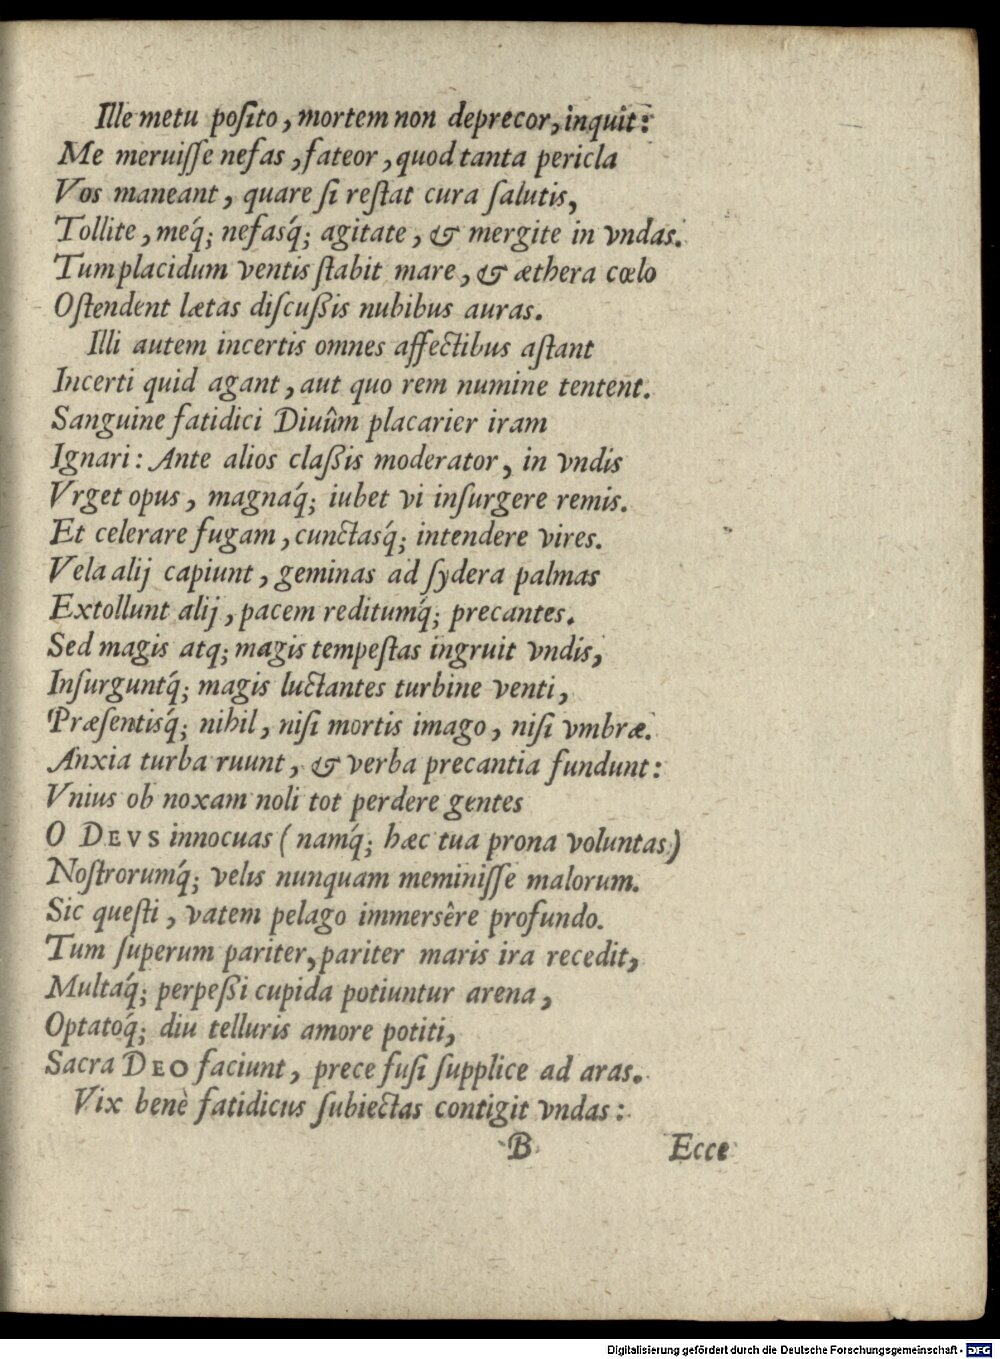 Ille metu poſito, mortem non deprecor, inquit:
Me meruiſſe nefas, fateor, quod tanta pericla
Vos maneant, quare ſi reſtat cura ſalutis,
Tollite, meq́; nefasq́; agitate, & mergite in vndas.
Tum placidum ventis ſtabit mare, & æthera cœlo
Oſtendent lætas diſcußis nubibus auras.
Illi autem incertis omnes affectibus aſtant
Incerti quid agant, aut quo rem numine tentent.
Sanguine fatidici Diuûm placarier iram
Ignari: Ante alios claßis moderator, in vndis
Vrget opus, magnaq́; iubet vi inſurgere remis.
Et celerare fugam, cunctasq́; intendere vires.
Vela alij capiunt, geminas ad ſydera palmas
Extollunt alij, pacem reditumq́; precantes.
Sed magis atq; magis tempeſtas ingruit vndis,
Inſurguntq́; magis luctantes turbine venti,
Præſentisq́; nihil, niſi mortis imago, niſi vmbræ.
Anxia turba ruunt, & verba precantia fundunt:
Vnius ob noxam noli tot perdere gentes
O DEVS innocuas (namq́; hæc tua prona voluntas)
Noſtrorumq́; velis nunquam meminiſſe malorum.
Sic queſti, vatem pelago immersêre profundo.
Tum ſuperum pariter, pariter maris ira recedit,
Multaq́; perpeßi cupida potiuntur arena,
Optatoq́; diu telluris amore potiti,
Sacra DEO faciunt, prece fuſi ſupplice ad aras.
Vix benè fatidicus ſubiectas contigit vndas:
B Ecce
Digitalisierung gefördert durch die Deutsche Forschungsgemeinschaft - DFG